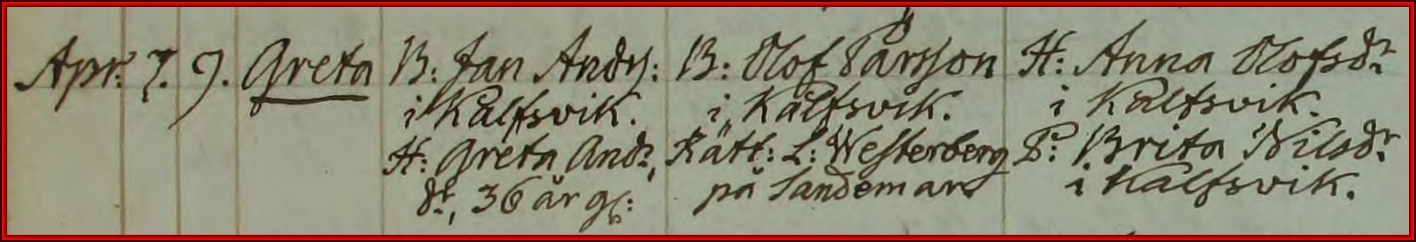 Apr: 7. 9. Greta B: Jan Anders: B: Olof Pärsson H: Anna Olofsdr
i Kalfsvik. i Kalfsvik. i Kalfsvik.
H: Greta And. Rätt: L: Westerberg P: Brita Nilsdr
dr, 36 år g: på Sandemars i Kalfsvik.